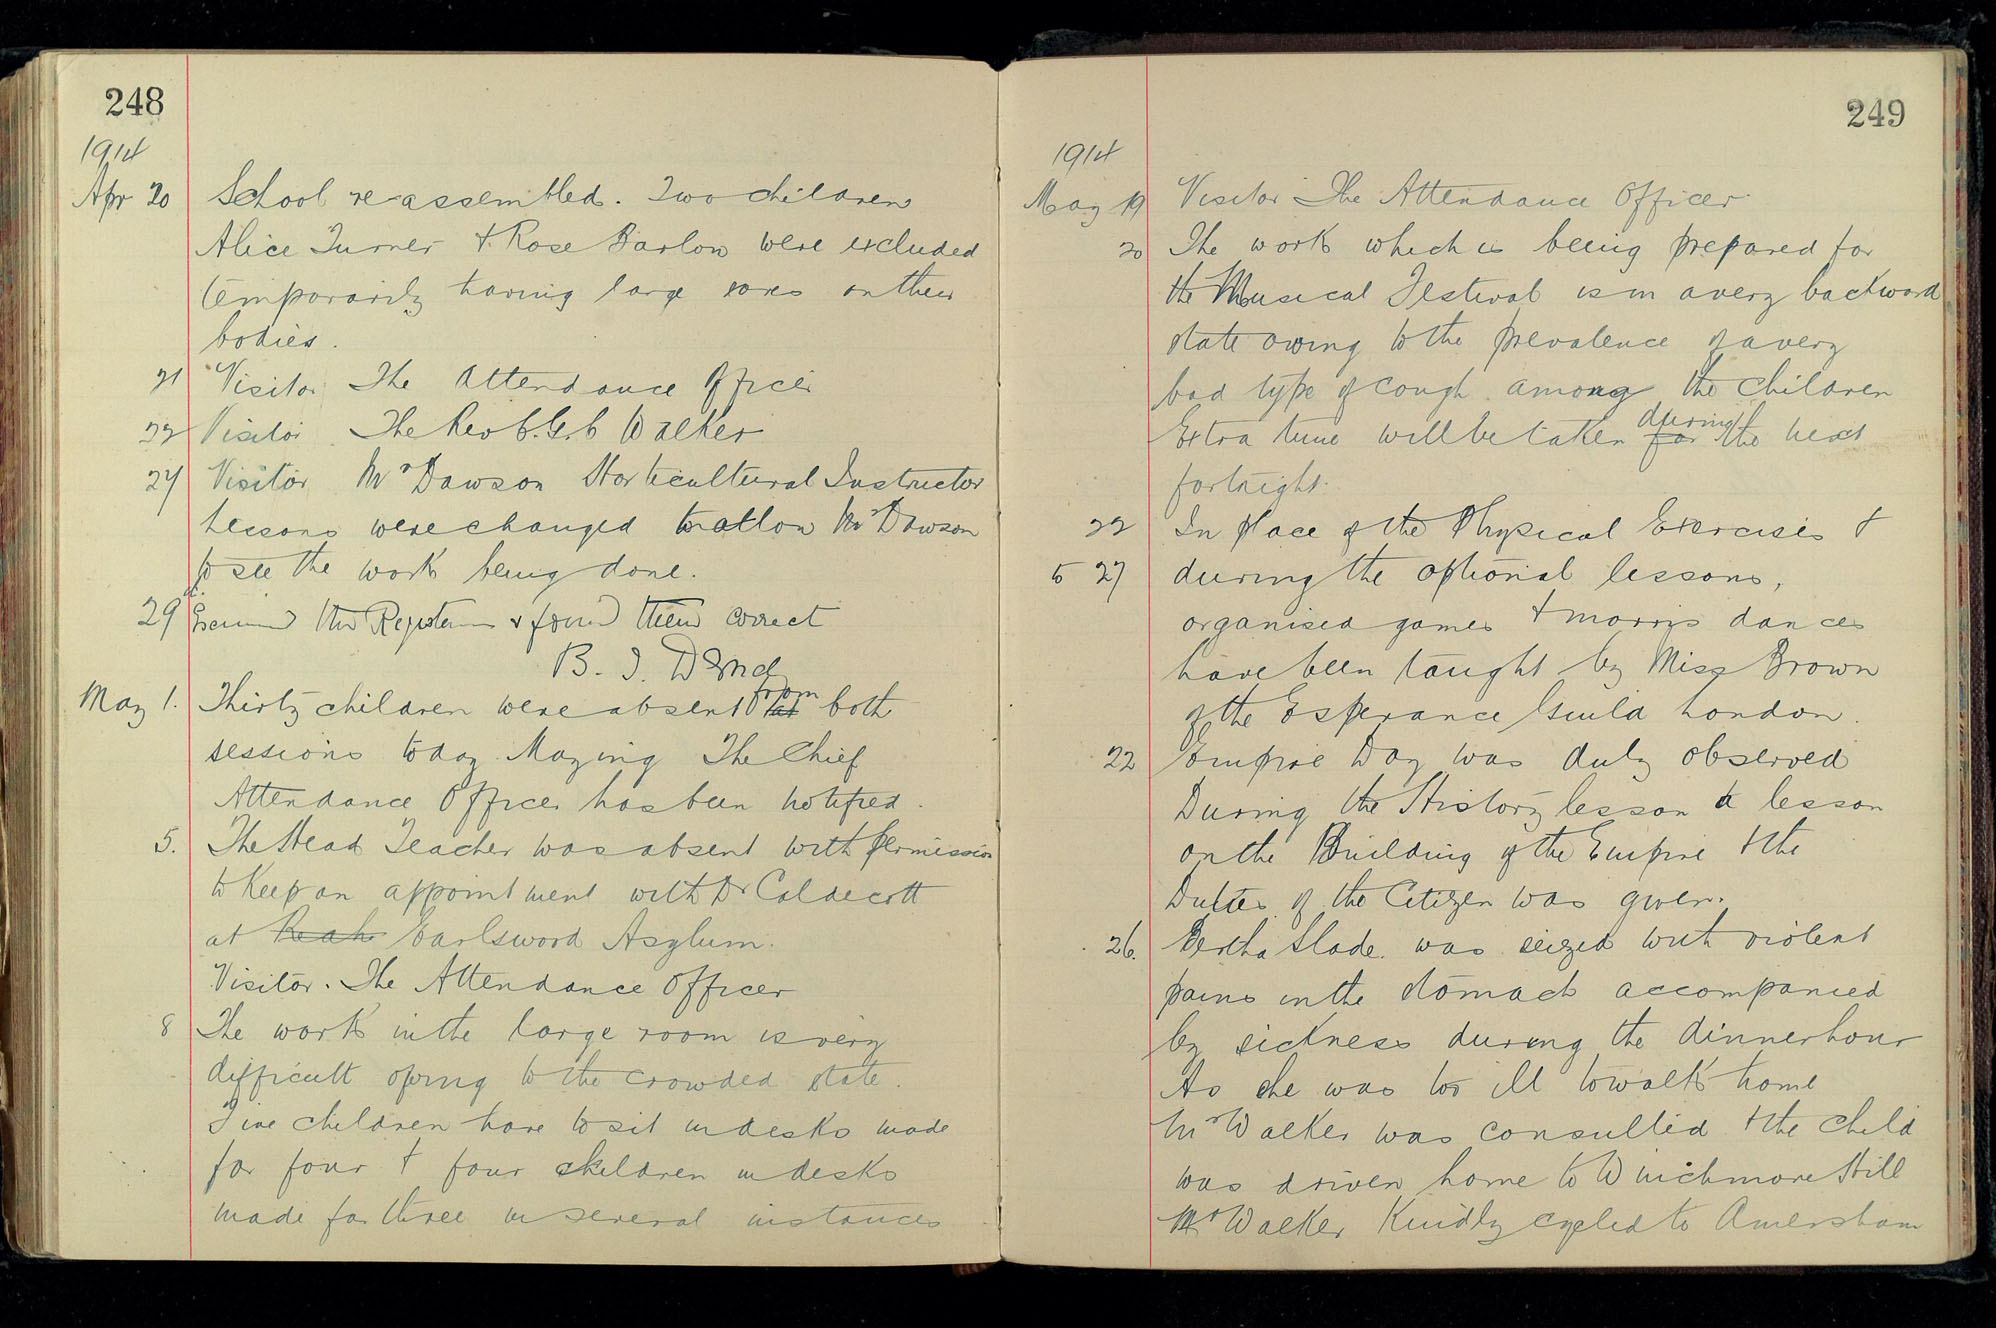 248
1914
Apr 20 School re-assembled. Two children
Alice Turner & Rose Barlow were excluded
temporarily having large sores on their
bodies.
21 Visitor The Attendance Officer
22 Visitor The Rev C.G.C Walker
27 Visitor Mr Dawson Horticultural Instructor
Lessons were changed to allow Mr Dawson
to see the work being done.
29 the Registers & found them correct
B. I.
May 1. Thirty children were absent from at both
sessions today Maying The Chief
Attendance Officer has been notified.
5. The Head Teacher was absent with permission
to keep an appointment with Dr Caldecott
at Earlswood Asylum.
Visitor. The Attendance Officer
8 The work in the large room is very
difficult owing to the crowded state.
Five children have to sit in desks made
for four & four children in desks
made for three in several instances
249
1914
May 19 Visitor The Attendance Officer
20 The work which is being prepared for
the Musical Festival is in a very backward
state owing to the prevalence of a very
bad type of cough among the children
Extra time will be taken for during the next
fortnight.
22 In place of the Physical Exercises &
to 27 during the optional lessons,
organised games & morris dances
have been taught by Miss Brown
of the Esperance Guild London.
22 Empire Day was duly observed
During the History lesson a lesson
on the Building of the Empire & the
Duties of the Citizen was given.
26. Bertha Slade was seized with violent
pains in the stomach accompanied
by sickness during the dinner hour
As she was too ill to walk home
Mr Walker was consulted & the child
was driven home to Winchmore Hill
Mr Walker kindly cycled to Amersham